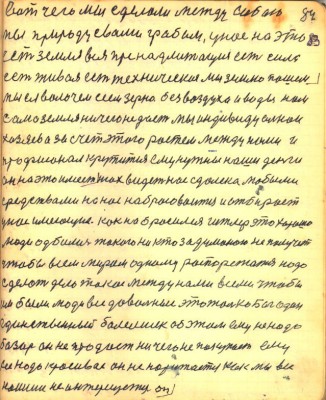 Вот чего мы сделали между собою 82
мы природу с вами грабим, у нас на это
есть земля вся принадлежащая есть сила
есть живая есть техническая мы землю пашем
мы волочем сеем зерна без воздуха и воды нам
сама земля ничего не даст мы индивидуальной
хозяева за счет этого растем между нами и
наши деньги
он на это имеет
средствами на нас набрасывается и отбирает
у нас имеющие. как набросился гитлер это хорошо
люди одбились такого ни кто за думаною не получит
чтобы всем миром одному распоряжатся надо
сделать дело такое между нами всеми чтобы
им были люди все довольные это только бог один
единственный болельщик об этом ему не надо
базар он не продаст ни чего не покупает ему
не надо красивая он не как мы все
нашими не интересуется он